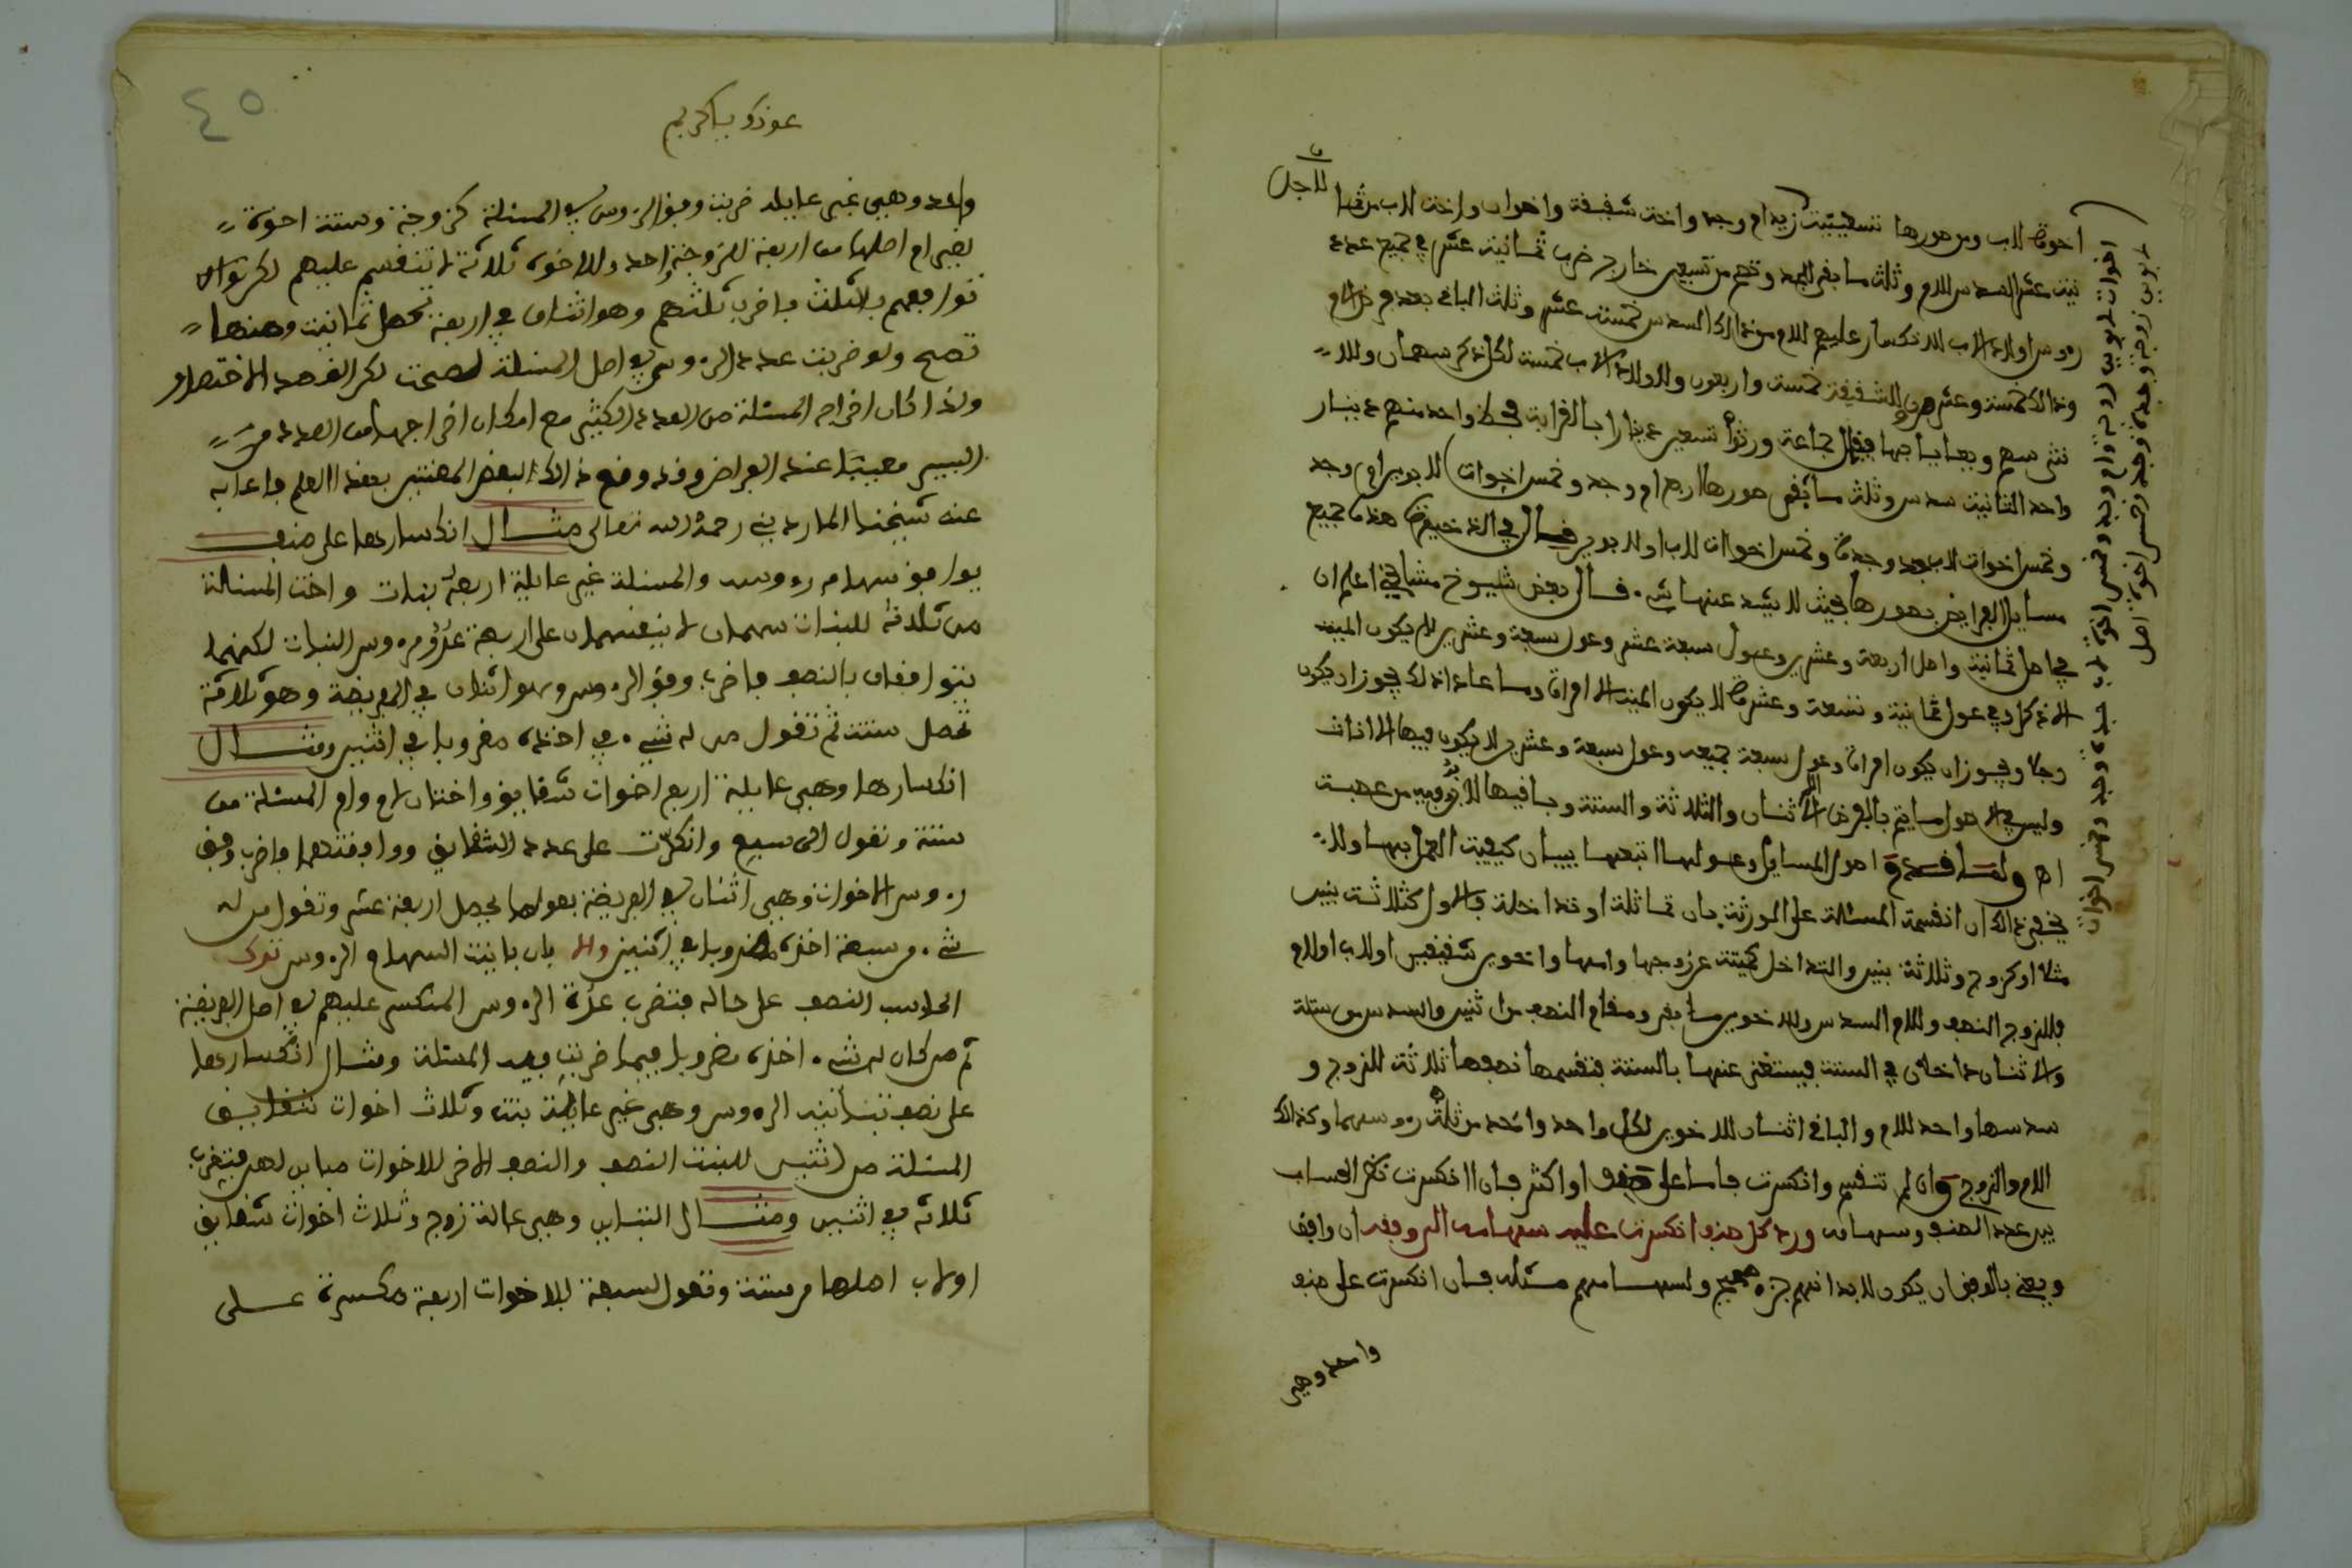 اخوة لاب ومن صورها تسعينية زيد ام وجد واخت شقيقة واخوان واخت لاب من ثما
للاجل
نية عشر السدس للام وثلث ما بقي للجد وتصح من تسعين خارج ضرب ثمانية عشر في خمسة عدد
رووس اولاد الاب لانكسار عليهم للام من ذالك السدس خمسة عشر وثلث الباقي بعد فرض الام
وذالك خمسة وعشرون للشقيقة خمسة واربعون ولاولاد الاب خمسة لكل ذكر سهمان وللا
نثى سهم ويعايا بها فيقال جماعة ورثوا تسعين دينارا بالقرابة فحظ واحد منهم دينار
واحد الثانية سدس وثلث ما بقي صورها اربع ام وجد وخمس اخوات لابوين ام وجد
وخمس اخوات لاب جد وجدة وخمس اخوات لاب او لابوين قال في الذخيرة هذه جميع
مسايل الفرايض بصورها بحيث لا يشد عنها شيء قال بعض شيوخ مشايخي اعلم ان
في اصل ثمانية واصل اربعة وعشرين وعول سبعة عشر وعول سبعة وعشرين لا يكون الميت
الا ذكرا وفي عول ثمانية وتسعة وعشرة لا يكون الميت الا امراة وما عدا ذالك يجوز ان يكون
رجلا ويجوز ان يكون امراة وعول سبعة جميعه وعول سبعة وعشرين لا يكون فيها الا اناث
وليس في الاصول ما يتم بالفرض الا اثنان والثلاثة والستة وباقيها لا بد فيه من عصبة
اه ولما قدم اصول المسايل وعولها اتبعها ببيان كيفية العمل بها ولا
يخفى ذالك ان انقسمت المسئلة على الورثة بان تماثلة او تداخلة فالاول كثلاثة بنين
مثلا او كزوج وثلاثة بنين والتداخل كميتة عن زوجها وامها واخوين شقيقين او لاب او لام
فللزوج النصف وللام السدس وللاخوين ما بقي ومقام النصف من اثنين والسدس من ستة
والاثنان داخلان في الستة فيستغنى عنها بالستة فتقسمها نصفها ثلاثة للزوج و
سدسها واحد للام والباقي اثنان للاخوين لكل واحد واحد من ثلثه رووسهما وكذالك
الام والزوج وان لم تنقسم وانكسرت فاما على صنف او اكثر فان انكسرت نظر الحساب
بين عدد الصنف وسهامه ورد كل صنف انكسرت عليه سهامه الى وفقه ان وافق
ويعني بالوفق ان يكون لاعدادهم جزء صحيح ولسهامهم مثله فان انكسرت على صنف
واحد وهي
لابوين زوجة وجدة وجد وخمس اخوة اصل
عونك يا كريم
٤٥
واحد وهي غير عايلة ضربت وفق الرءوس في المسئلة كزوجة وستة اخوة
لغير ام اصلها من اربعة للزوجة واحد وللاخوة ثلاثة لا تنقسم عليهم لكن توا
توافقهم بالثلث فاضرب ثلثهم وهو اثنان في اربعة تحصل ثمانية ومنها
تصح ولو ضربت عدد الرءوس في اصل المسئلة لصحت لكن الغرض الاختصار
ولذا كان اخراج المسئلة من العدد الكثير مع امكان اخراجها من العدد
اليسير معيبا عند الفراض وقد وقع ذالك لبعض المفتين بهذا العلم فاعابه
عنه شيخنا المارديني رحمه الله تعالى مثال انكسارها على صنف
يوافق سهامه رءوسه والمسئلة غير عايلة اربعة بنات واخت المسئلة
من ثلاثة للبنات سهمان لا ينقسمان على اربعة عدد رءوس البنات لكنهما
يتوافقان بالنصف فاضرب وفق الرءوس وهو اثنان في الفريضة وهو ثلاثة
تحصل ستة ثم تقول من له شيء في اخذه مضروبا في اثنين ومثال
انكسارها وهي عايلة اربع اخوات شقايق واختان لام وام المسئلة من
ستة وتعول الى سبع وانكسرت على عدد الشقايق ووافقتها فاضرب وفق
رءوس الاخوات وهي اثنان في الفريضة بعولها يحصل اربعة عشر وتقول من له
شيء من سبعة اخذه مضروبا في اثنين والا بان باينت السهام الرءوس ترك
الحاسب الصنف على حاله فتضرب عدة الرءوس المنكسر عليهم في اصل الفريضة
ثم من كان له شيء اخذه مضروبا فيما ضربت فيه المسئلة ومثال انكسارها
على صنف تباينه الرءوس وهي غير عايلة بنت وثلاث اخوات شقايق
المسئلة من اثنين للبنت النصف والنصف الاخر للاخوات مباين لهن فتضرب
ثلاثة في اثنين ومثال التباين وهي عالة زوج وثلاث اخوات شقايق
او لاب اصلها من ستة وتعول لسبعة للاخوات اربعة منكسرة على